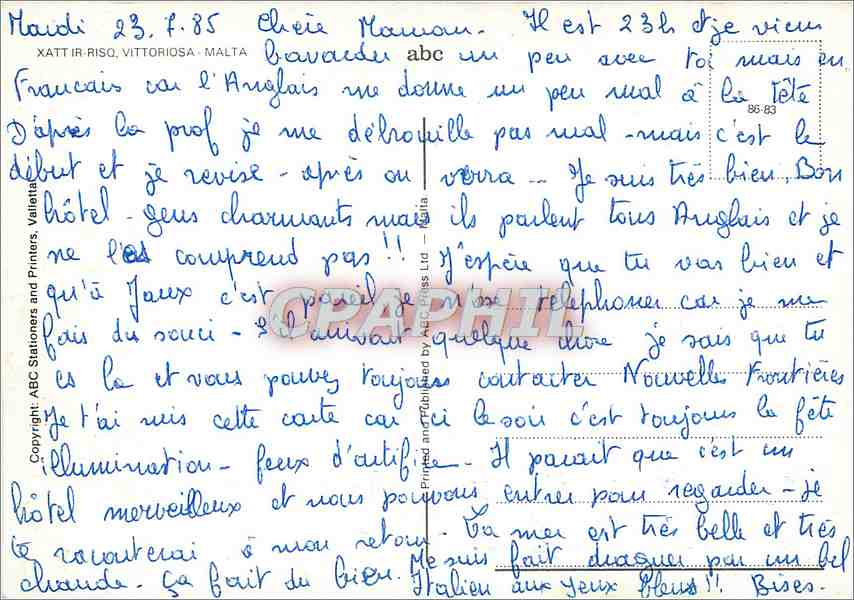 Mardi 23.7.85 Chère Maman. Il est 23h et je viens
XATT IR-RISQ, VITTORIOSA - MALTA
bavarder abc un peu avec toi mais en
Francais car l'Anglais me donne un peu mal à la tête
86-83
D'après la prof je me débrouille pas mal - mais c'est le
début et je revise - après on verra... Je suis très bien, Bon
hôtel - gens charmants mais ils parlent tous Anglais et je
ne les comprend pas!! J'espère que tu vas bien et
qu'à Jaux c'est pareil je n'ose telephoner car je me
fais du souci - S'il arrivait quelque chose je sais que tu
es la et vous pouvez toujours contacter Nouvelles Frontières
Je t'ai mis cette carte car ici le soir c'est toujours la fête
illumination - feux d'artifice - Il parait que c'est un
hôtel merveilleux et nous pouvons entrer pour regarder - je
te raconterai à mon retour. La mer est très belle et très
chaude - ça fait du bien. Je me suis fait draguer par un bel
Italien aux yeux bleus!! Bises.
Copyright: ABC Stationers and Printers, Valletta
Printed and Published by ABC Press Ltd — Malta
CPAPHIL